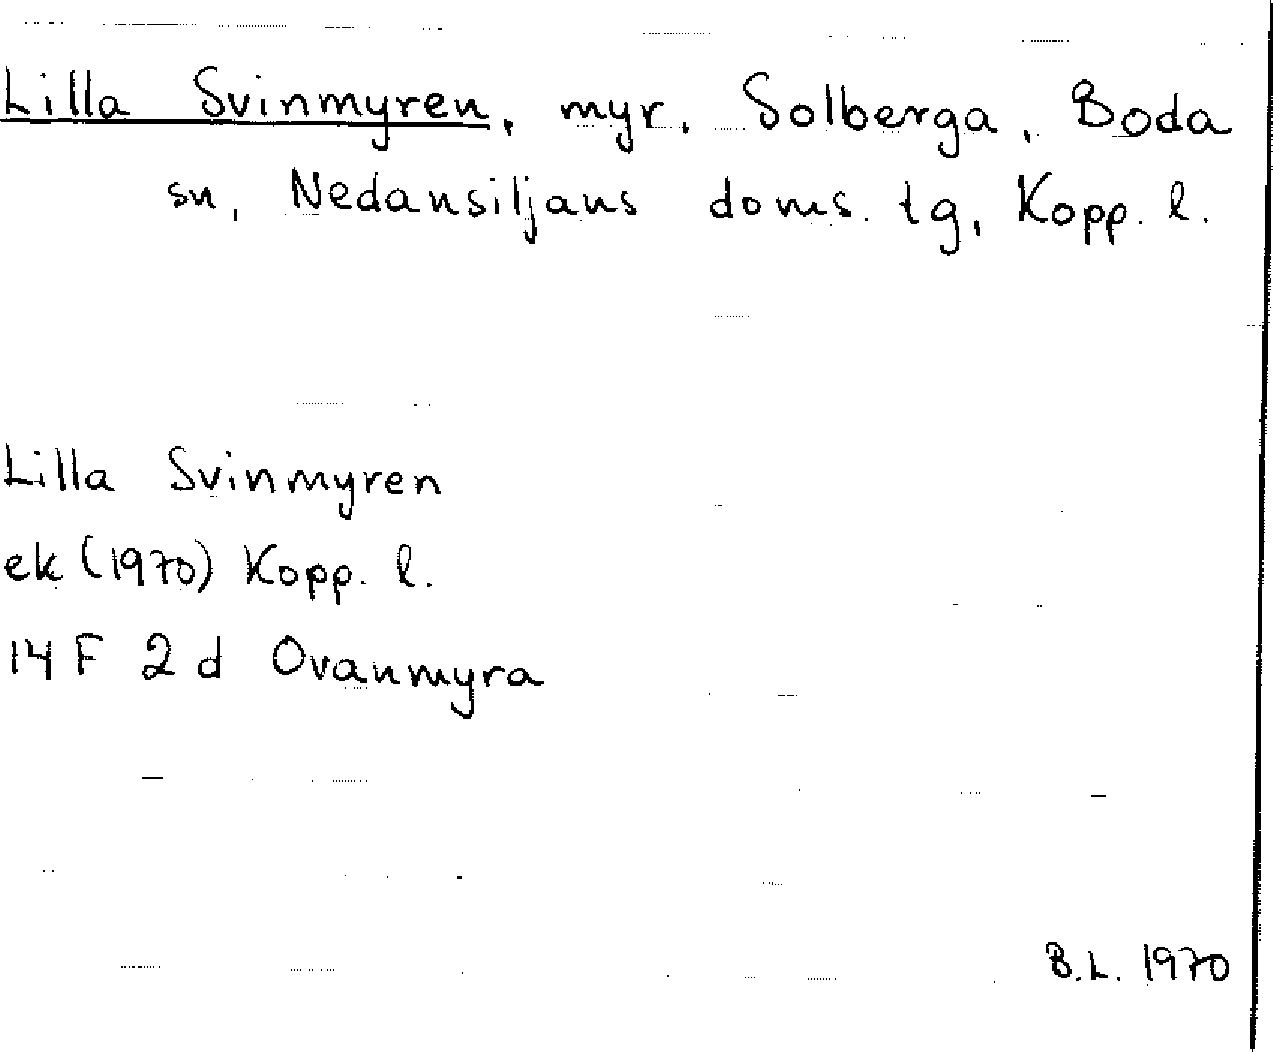 Lilla Svinmyren, myr, Solberga, Boda
sn, Nedansiljans doms. tg, Kopp. l.
Lilla Svinmyren
ek (1970) Kopp. l.
14 F 2 d Ovanmyra
B.L. 1970